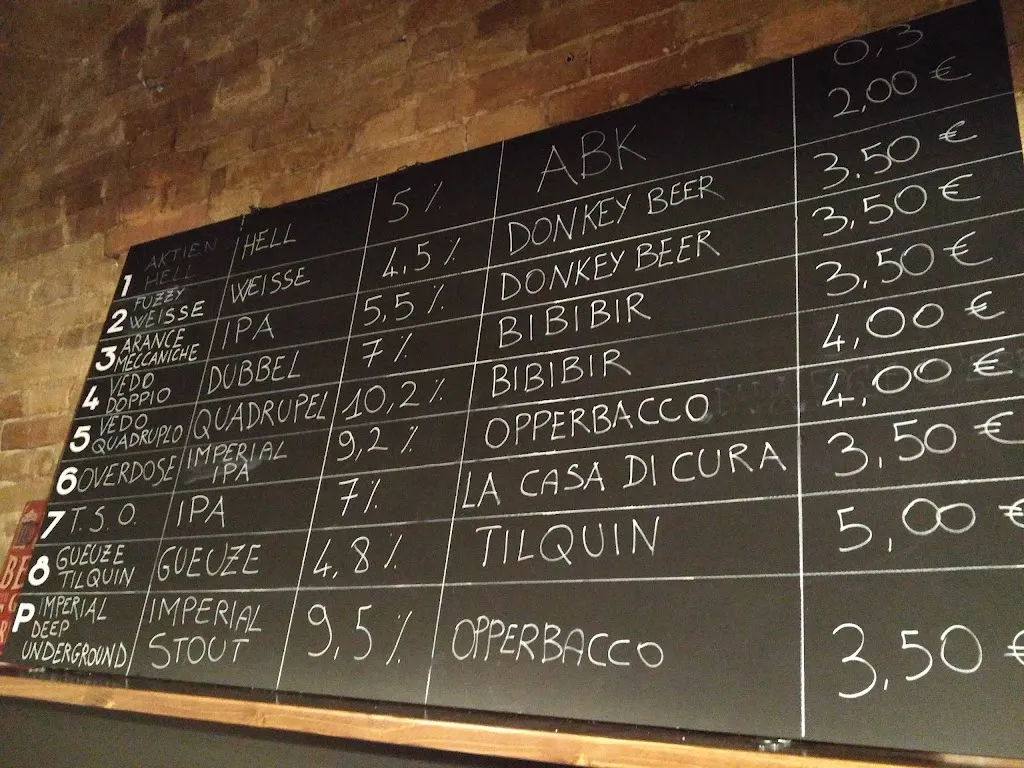 0,3
1 AKTIEN HELL HELL 5% ABK 2,00 €
2 FUZZY WEISSE WEISSE 4,5% DONKEY BEER 3.50 €
3 ARANCE MECCANICHE IPA 5,5% DONKEY BEER 3,50 €
4 VEDO DOPPIO DUBBEL 7% BIBIBIR 3,50 €
5 VEDO QUADRUPLO QUADRUPEL 10,2% BIBIBIR 4,00 €
6 OVERDOSE IMPERIAL IPA 9,2% OPPERBACCO 4,00 €
7 T.S.O. IPA 7% LA CASA DI CURA 3,50 €
8 GUEUZE TILQUIN GUEUZE 4,8% TILQUIN 5,00 €
P IMPERIAL DEEP UNDERGROUND IMPERIAL STOUT 9,5% OPPERBACCO 3,50 €